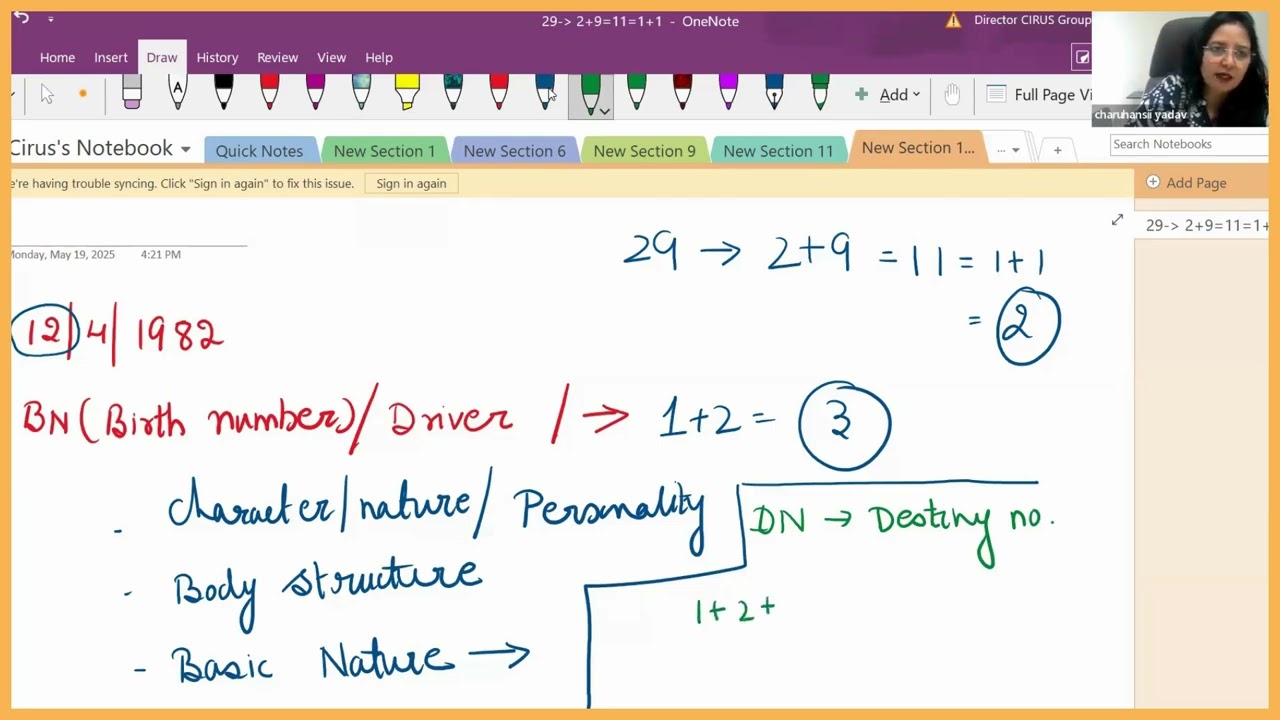 29-> 2+9=11=1+1 - OneNote
Director CIRUS Group
Home Insert Draw History Review View Help
A
Add
Full Page Vi
charuhansii yadav
Cirus's Notebook
Quick Notes
New Section 1
New Section 6
New Section 9
New Section 11
New Section 1...
...
+
Search Notebooks
e're having trouble syncing. Click "Sign in again" to fix this issue.
Sign in again
Add Page
29-> 2+9=11=1+
Monday, May 19, 2025 4:21 PM
29 → 2+9 = 11 = 1+1
= 2
12/4/1982
BN (Birth number)/ Driver / → 1+2 = 3
- Character/nature/ Personality
DN → Destiny no.
- Body structure
1+2+
- Basic Nature →